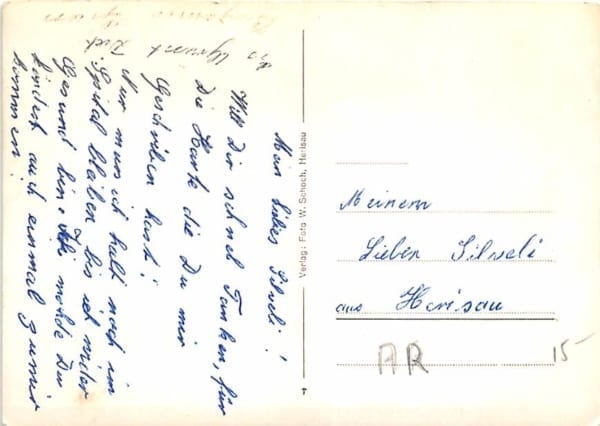 Mein Liebes Silveli!
Will Dir schnel Tanken, für
Die Karte die Du mir
Geschriben hast!
Nur mus ich halt noch im
Spital bleiben bis ich wider
Gesund bin. Ich möchte Du
köndest auch einmal zu mir
kommen!
Verlag: Foto W. Schoch, Herisau
Meinem
Lieben Silveli
aus Herisau
AR
15-